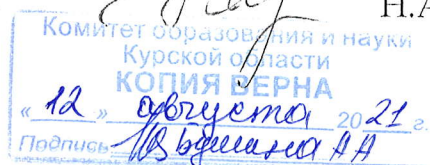 Н.А
Комитет образования и науки
Курской области
КОПИЯ ВЕРНА
«12» августа 2021 г.
Подпись